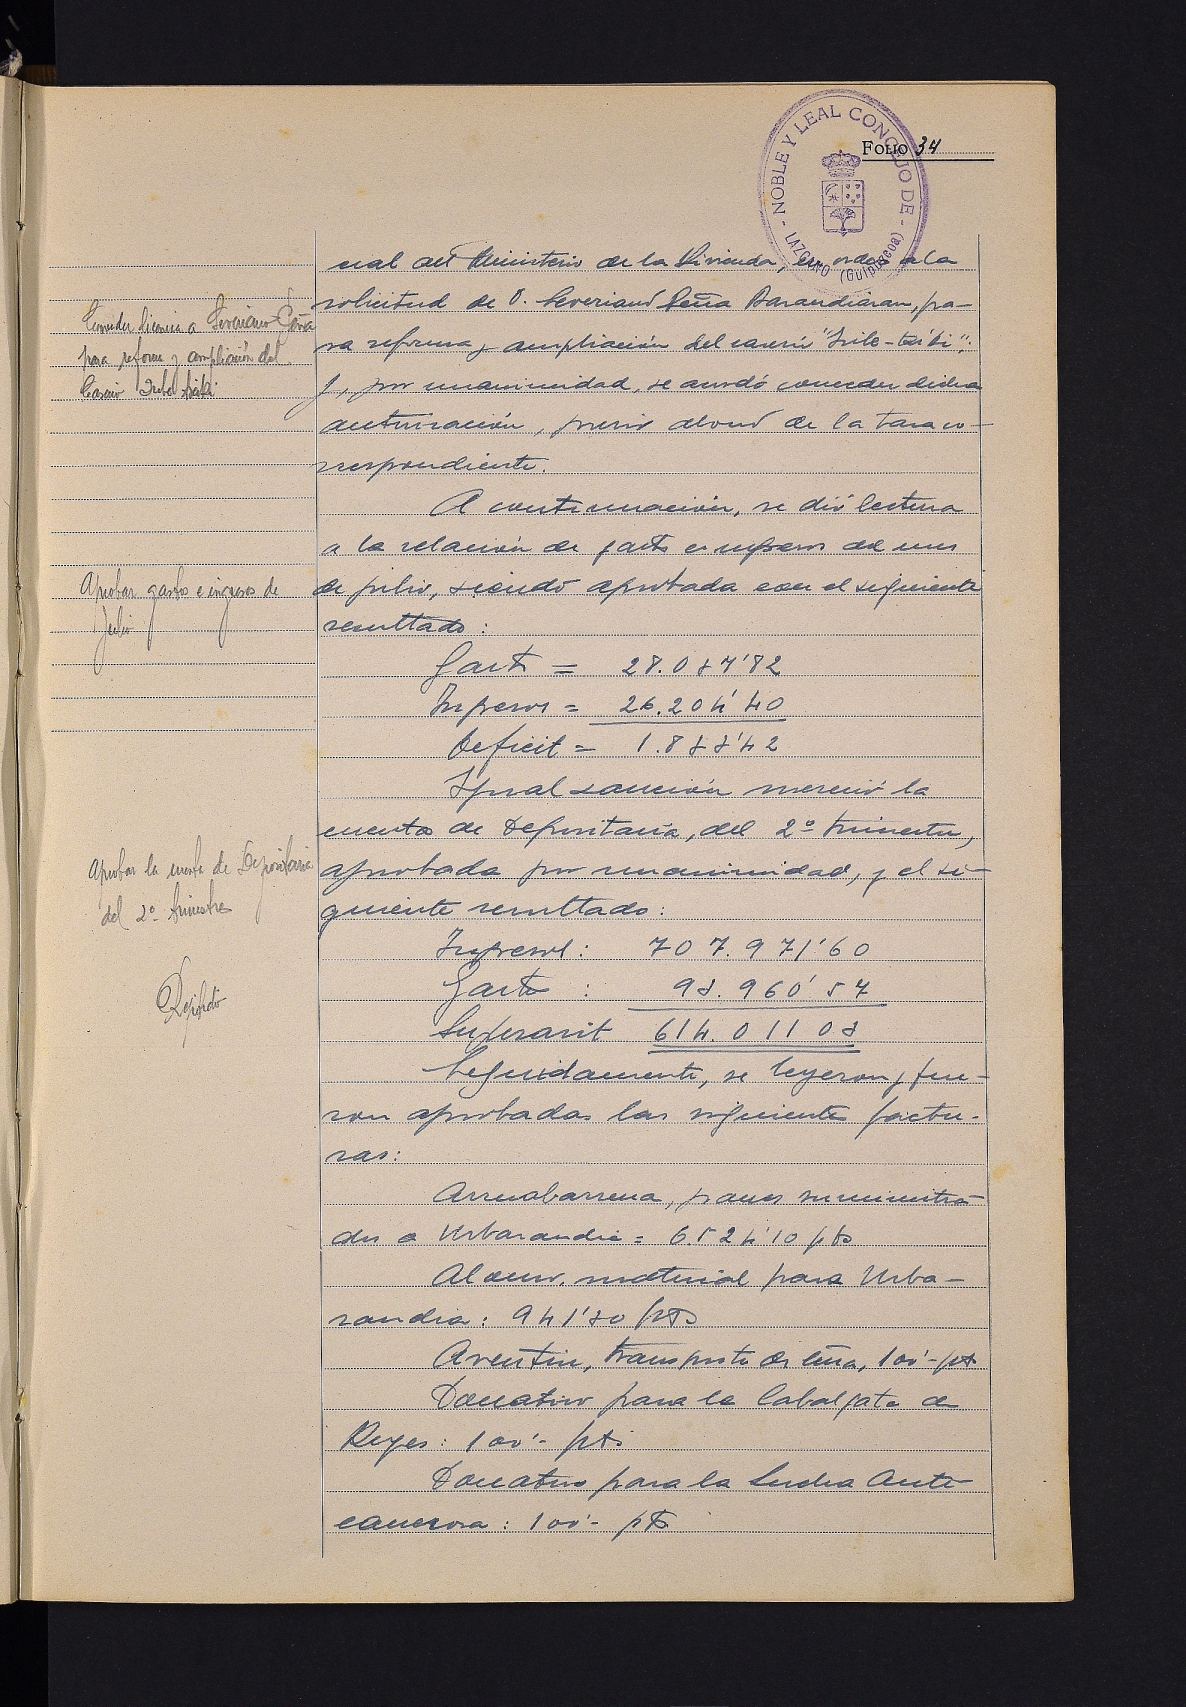 NOBLE Y LEAL CONCEJO DE
LAZCANO (Guipúzcoa)
FOLIO 34
cial del Ministerio de la Vivienda, en orden a la
solicitud de D. Severiano Peña Barandiaran, pa-
ra reforma y ampliación del caserío
y, por unanimidad, se acordó conceder dicha
autorización, previo abono de la tasa co-
rrespondiente.
A continuación, se dió lectura
a la relación de gastos e ingresos del mes
de julio, siendo aprobada con el siguiente
resultado:
Gastos =
Ingresos = 26.204'40
Deficit =
Igual sanción mereció la
cuenta de Depositaría, del 2º trimestre,
aprobada por unanimidad, y el si-
guiente resultado:
Ingresos: 707.971'60
Gastos :
Superavit
Seguidamente, se leyeron y fue-
ron aprobadas las siguientes factu-
ras:
Arruabarrena, panes suministra-
dos a Urbarandia = 6.524'10 pts
material para Urba-
randia: pts
Aventin, transporte de leña, 100'- pts
Donativo para la Cabalgata de
Reyes: 100'- pts
Donativo para la Lucha Anti
cancerosa: 100'- pts
Conceder licencia a Severiano Peña
para reforma y ampliación del
Caserío
Aprobar gastos e ingresos de
Julio
Aprobar la cuenta de Depositaría
del 2º trimestre